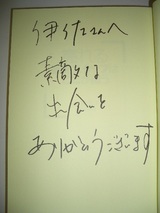 伊佐さんへ
素敵な
出会いを
ありがとうございます